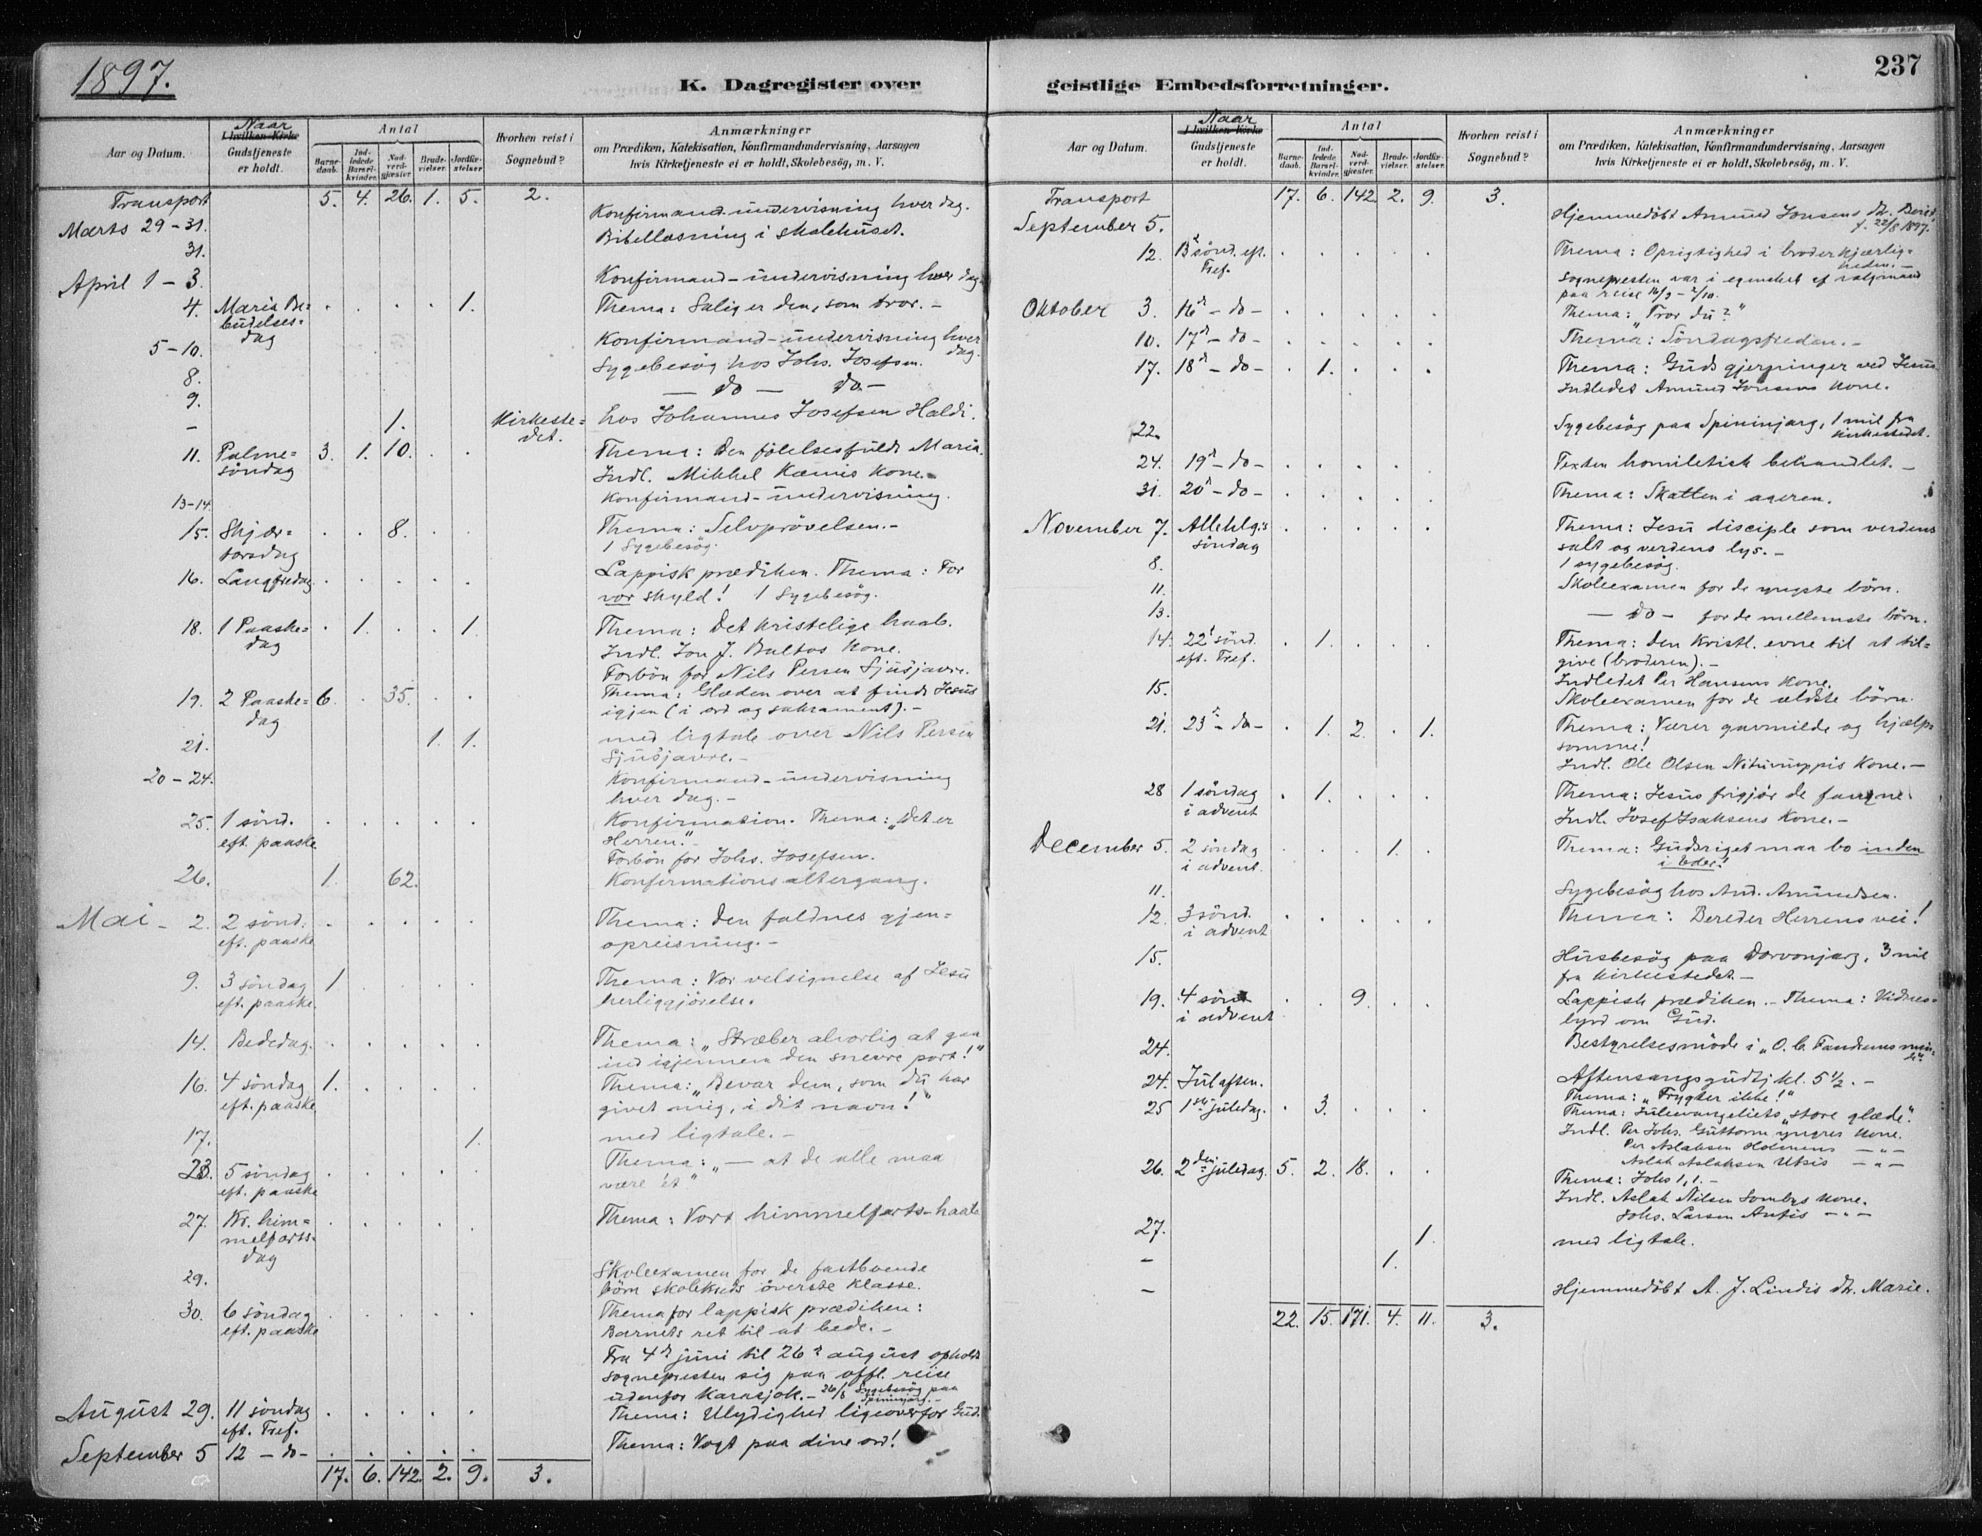 1897.
K. Dagregister over
Aar og Datum.
Naar
I hvilken Kirke
Gudstjeneste
er holdt.
Antal
Barne-
daab.
Ind-
ledede
Barsel-
kvinder.
Nad-
verd-
gjæster.
Brude-
vielser.
Jordfæ-
stelser
Hvorhen reist i
Sognebud?
Anmærkninger
om Prædiken, Katekisation, Konfirmandundervisning, Aarsagen
hvis Kirketjeneste ei er holdt, Skolebesög, m. V.
Transport 5. 4. 26. 1. 5. 2.
Marts 29-31. Konfirmand-undervisning hver dag.
31. Bibellæsning i skolehuset.
April 1-3. Konfirmand-undervisning hver dag.
4. Mariæ Be- . . . . 1. Thema: Salig er den, som tror.-
budelses-
dag
5-10. Konfirmand-undervisning hver
dag.
8. Sygebesög hos Johs. Josefsen.
9. — do — do —
- 1. Kirkeste- hos Johannes Josefsen Haldi.
det.
11. Palme- 3. 1. 10. . . Thema: Den fölelsesfulde Maria.
söndag Indl. Mikkel Kæmis kone.-
13-14. Konfirmand-undervisning.
15. Skjær- . . 8. . . Thema: Selvprövelsen.-
torsdag 1 Sygebesög.
16. Langfredag . . . . . Lappisk prædiken. Thema: For
vor skyld! 1 Sygebesög.
18. 1 Paaske- . 1. . . 1. Thema: Det kristelige haab.
dag Indl. Jon J. Baltos kone.
Forbön for Nils Persen Sjusjavre.
19. 2 Paaske- 6. . 35. . . Thema: Glæden over at finde Jesus
dag igjen (i ord og sakrament).-
21. 1. 1. med ligtale over Nils Persen
Sjusjavre.-
20-24. Konfirmand-undervisning
hver dag.-
25. 1 sönd. . . . . . Konfirmation. Thema: „Det er
eft. paaske Herren."-
Forbön for Johs. Josefsen.
26. 1. 62. Konfirmationsaltergang.
Mai - 2. 2 sönd. . . . . . Thema: Den faldnes gjen-
eft. paaske opreisning.-
9. 3 söndag 1 . . . . Thema: Vor velsignelse af Jesu
eft. paaske. herliggjörelse.
14. Bededag. . . . . . Thema: „Stræber alvorlig at gaa
ind igjennem den snevre port!"
16. 4 söndag 1. . . . . Thema: „Bevar dem, som du har
eft. paaske givet mig, i dit navn!"
17. 1. med ligtale.-
23. 5 söndag . . . . . Thema: „— at de alle maa
eft. paaske være ét"
27. Kr. him- . . . . . Thema: Vort himmelfarts-haab
melfarts-
dag
29. Skoleexamen for de fastboende
börn skolekreds överste klasse.
30. 6 söndag . . . . . Thema for lappisk prædiken:
eft. paaske Barnets ret til at bede.-
Fra 4de juni til 26de august opholdt
sognepresten sig paa offl. reise
udenfor Karasjok.- 26/8 Sygebesög paa
Spininjarg.-
August 29. 11 söndag . . . . . Thema: Ulydighed ligeoverfor Gud.
eft. Tref.
September 5 12 - do - . . . . . Thema: Vogt paa dine ord!
17. 6. 142. 2. 9. 3.
237
geistlige Embedsforretninger.
Aar og Datum.
Naar
I hvilken Kirke
Gudstjeneste
er holdt.
Antal
Barne-
daab.
Ind-
ledede
Barsel-
kvinder.
Nad-
verd-
gjæster.
Brude-
vielser.
Jordfæ-
stelser
Hvorhen reist i
Sognebud?
Anmærkninger
om Prædiken, Katekisation, Konfirmandundervisning, Aarsagen
hvis Kirketjeneste ei er holdt, Skolebesög, m. V.
Transport 17. 6. 142. 2. 9. 3.
September 5. Hjemmedöbt Amund Jonsens dt. Berit,
f. 22/8 1897.
12. 13 sönd. eft. . . . . . Thema: Oprigtighed i broderkjærlig-
Tref. heden.-
Sognepresten var i egenskab af valgmand
paa reise 16/9 - 2/10.
Oktober 3. 16de - do - . . . . . Thema: „Tror du?"
10. 17de - do - . . . . . Thema: Söndagsfreden.-
17. 18de - do - . 1. . . . Thema: Guds gjerninger ved Jesus
Indledet Amund Jonsens kone.
22. Sygebesög paa Spininjarg, 1 mil fra
kirkestedet.
24. 19de - do - . . . . . Texten homiletisk behandlet.-
31. 20de - do - . . . . . Thema: Skatten i ageren.
November 7. Allehlg.s . . . . . Thema: Jesu disciple som verdens
söndag salt og verdens lys.-
8. 1 sygebesög.
11. Skoleexamen for de yngste börn.
13. — do — for de mellemste börn.
14. 22de sönd. . 1. . . . Thema: Den kristl. evne til at til-
eft. Tref. give (broderen).-
Indledet Per Hansens kone.
15. Skoleexamen for de ældste börn.
21. 23de - do - . 1. 2. . 1. Thema: Værer gavmilde og hjælp-
somme!
Indl. Ole Olsen Nituvuoppis kone.-
28 1 söndag . 1. . . . Thema: Jesus frigjör de fangne.
i advent Indl. Josef Isaksens kone.-
December 5. 2 söndag . . . 1. . Thema: Gudsriget maa bo inden
i advent. i eder!
11. Sygebesög hos And. Amundsen.
12. 3 sönd. . . . . . Thema: Bereder Herrens vei!
i advent
15. Husbesög paa Dorvonjarg, 3 mil
fra kirkestedet.-
19. 4 sönd . . 9. . . Lappisk prædiken.- Thema: Vidnes-
i advent byrd om Gud.
24. Bestyrelsesmöde i „O. C. Fandrems min-
de".
24. Julaften. Aftensangsgudtj kl. 5 1/2.-
Thema: „Frygter ikke!"
25 1ste juledag. . 3. . . . Thema: Juleevangeliets „store glæde".
Indl. Per Johs. Guttorm yngres kone.
Per Aslaksen Holmens — " —
Aslak Aslaksen Utsis — " —
26. 2den juledag. 5. 2. 18. . . Thema: Johs 1, 1.-
Indl. Aslak Nilsen Sombys kone.
Johs. Larsen Antis — " —
27. 1. med ligtale.
- 1.
- Hjemmedöbt A. J. Lindis dt. Marie.
22. 15. 171. 4. 11. 3.